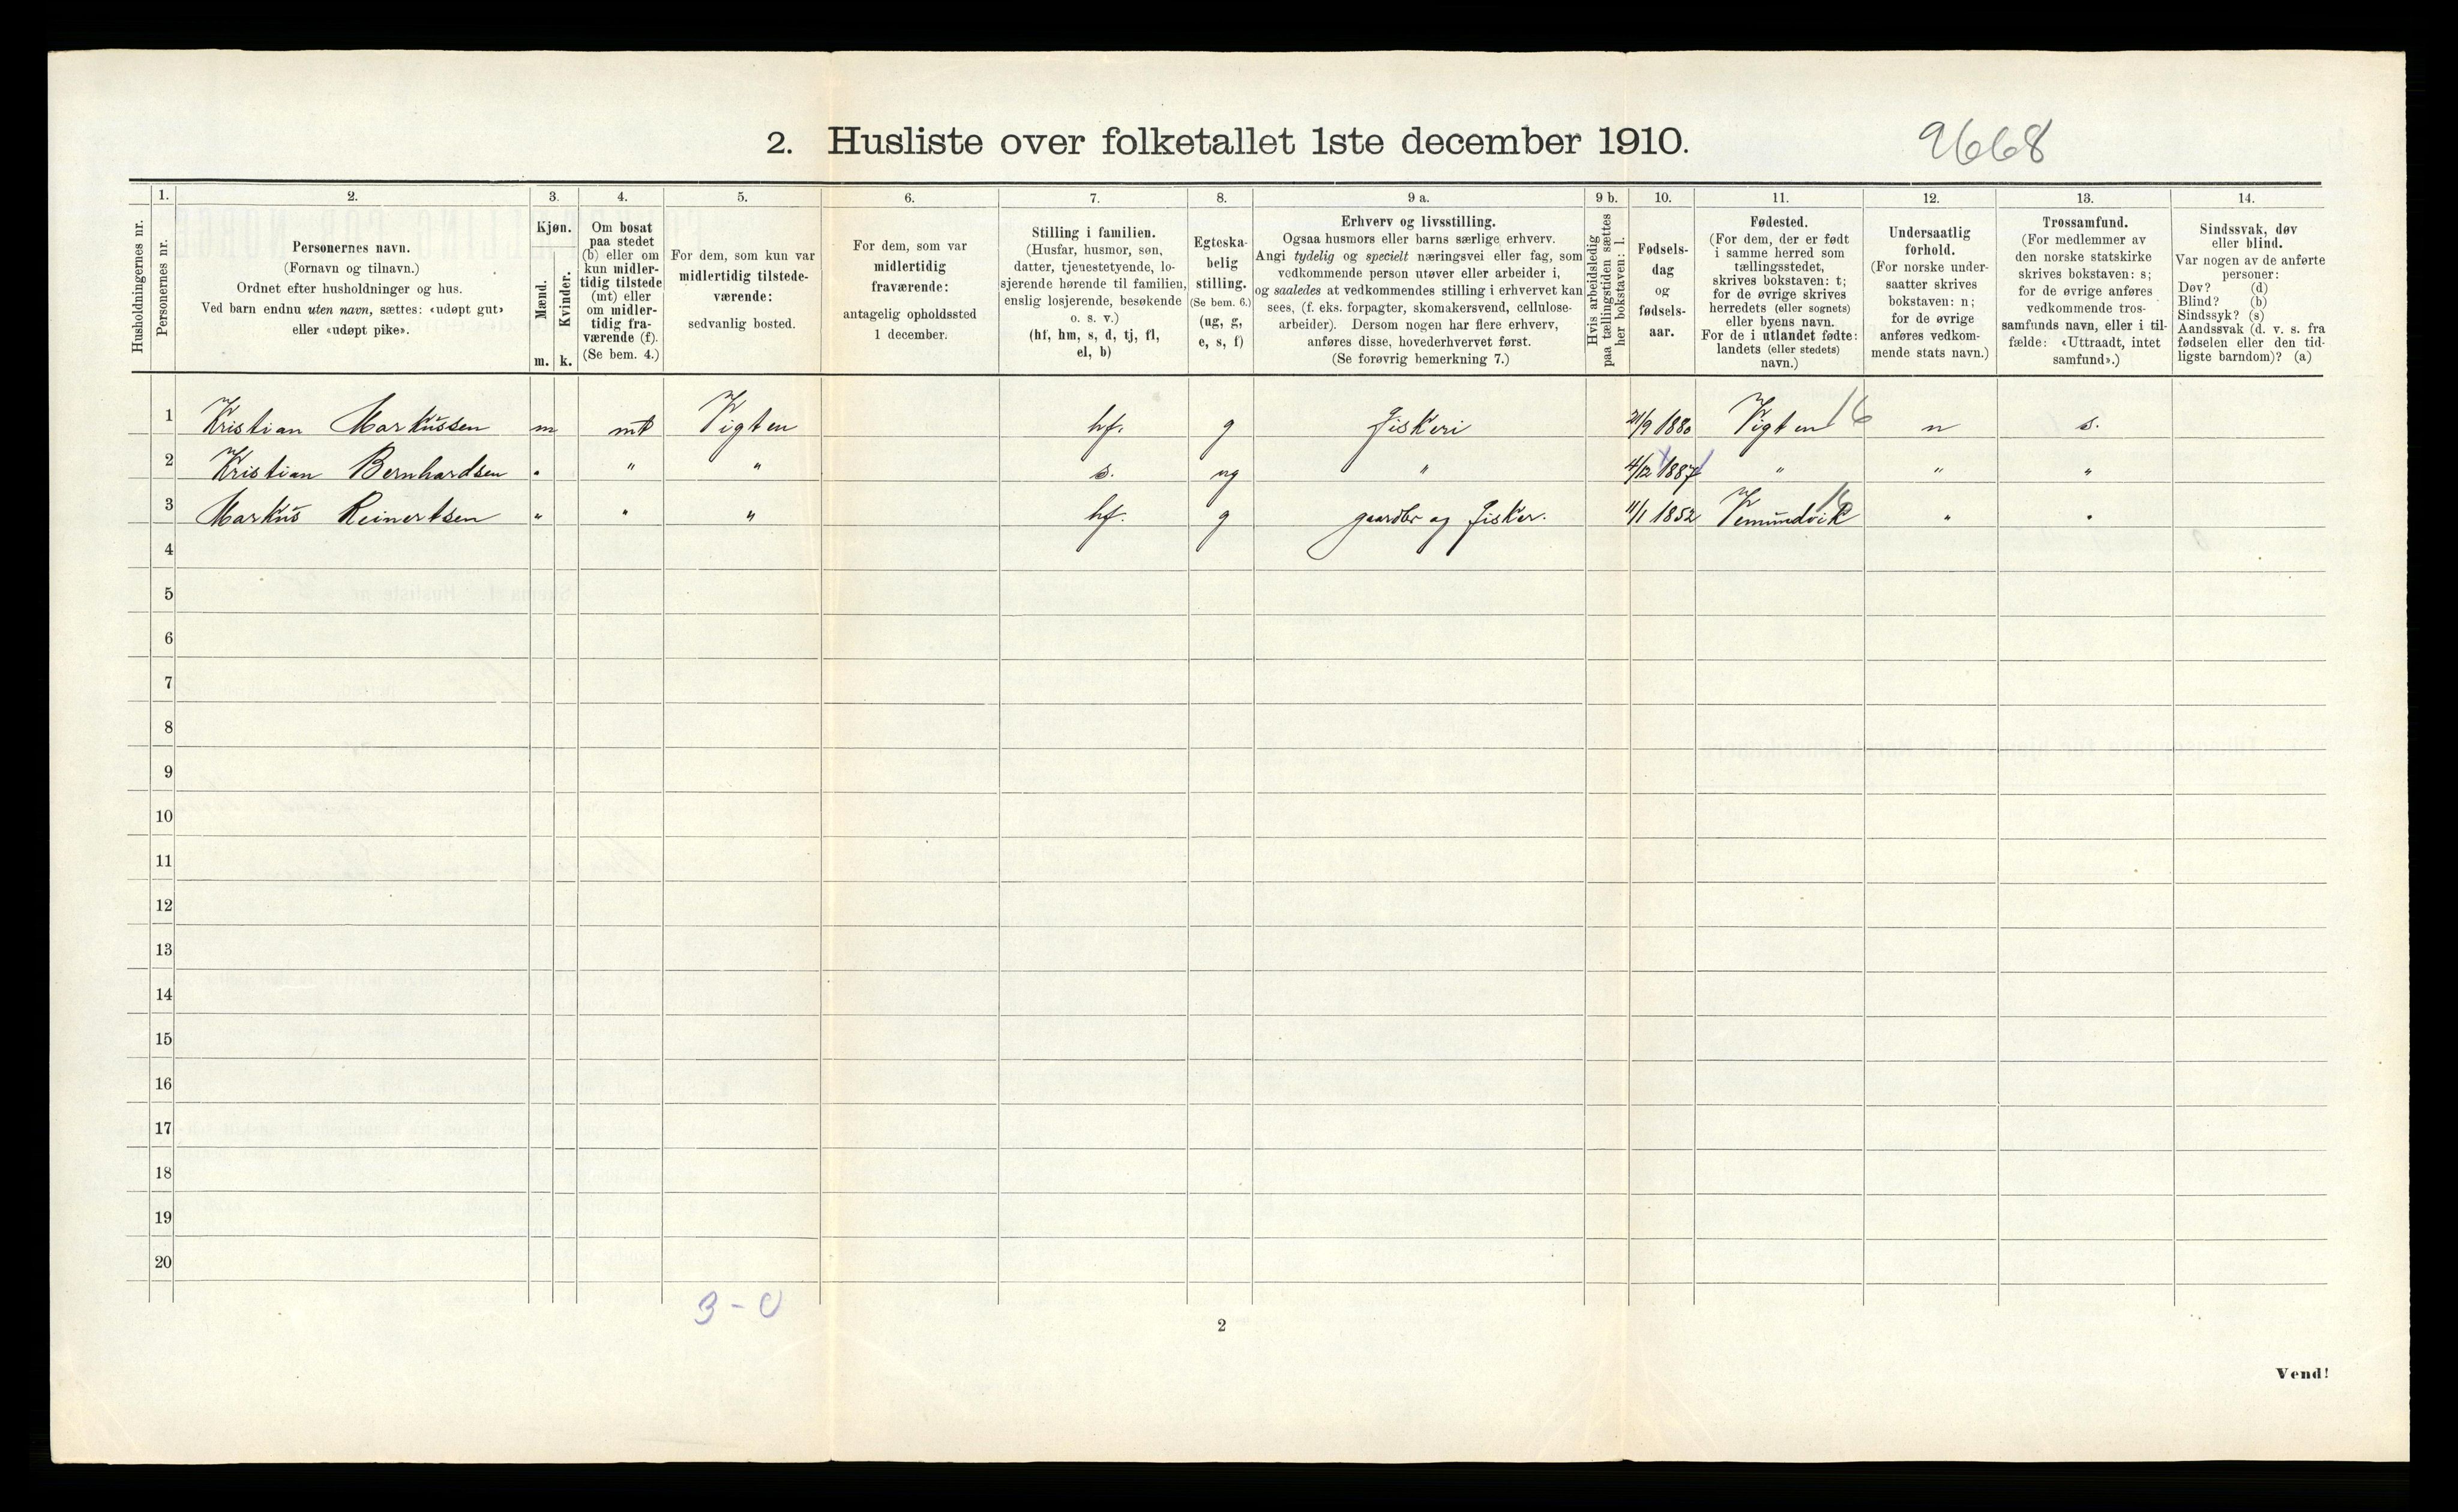 2. Husliste over folketallet 1ste december 1910.
9668
Husholdningernes nr.
1.
Personernes nr.
2.
Personernes navn.
(Fornavn og tilnavn.)
Ordnet efter husholdninger og hus.
Ved barn endnu uten navn, sættes: «udøpt gut»
eller «udøpt pike».
3.
Kjøn.
Mænd.
Kvinder.
m. k.
4.
Om bosat
paa stedet
(b) eller om
kun midler-
tidig tilstede
(mt) eller
om midler-
tidig fra-
værende (f).
(Se bem. 4.)
5.
For dem, som kun var
midlertidig tilstede-
værende:
sedvanlig bosted.
6.
For dem, som var
midlertidig
fraværende:
antagelig opholdssted
1 december.
7.
Stilling i familien.
(Husfar, husmor, søn,
datter, tjenestetyende, lo-
sjerende hørende til familien,
enslig losjerende, besøkende
o. s. v.)
(hf, hm, s, d, tj, fl,
el, b)
8.
Egteska-
belig
stilling.
(Se bem. 6.)
(ug, g,
e, s, f)
9 a.
Erhverv og livsstilling.
Ogsaa husmors eller barns særlige erhverv.
Angi tydelig og specielt næringsvei eller fag, som
vedkommende person utøver eller arbeider i,
og saaledes at vedkommendes stilling i erhvervet kan
sees, (f. eks. forpagter, skomakersvend, cellulose-
arbeider). Dersom nogen har flere erhverv,
anføres disse, hovederhvervet først.
(Se forøvrig bemerkning 7.)
9 b.
Hvis arbeidsledig
paa tællingstiden sættes
her bokstaven: l.
10.
Fødsels-
dag
og
fødsels-
aar.
11.
Fødested.
(For dem, der er født
i samme herred som
tællingsstedet,
skrives bokstaven: t;
for de øvrige skrives
herredets (eller sognets)
eller byens navn.
For de i utlandet fødte:
landets (eller stedets)
navn.)
12.
Undersaatlig
forhold.
(For norske under-
saatter skrives
bokstaven: n;
for de øvrige
anføres vedkom-
mende stats navn.)
13.
Trossamfund.
(For medlemmer av
den norske statskirke
skrives bokstaven: s;
for de øvrige anføres
vedkommende tros-
samfunds navn, eller i til-
fælde: «Uttraadt, intet
samfund».)
14.
Sindssvak, døv
eller blind.
Var nogen av de anførte
personer:
Døv? (d)
Blind? (b)
Sindssyk? (s)
Aandssvak (d. v. s. fra
fødselen eller den tid-
ligste barndom)? (a)
1 Kristian Markussen m mt Vigten hf. g fiskeri 21/9 1880 Vigten 16 n s.
2 Kristian Bernhardsen " " " s. ug " 4/12 1887 " " "
3 Markus Reinertsen " " " hf. g gaardbr og fisker. 11/1 1852 Vemundvik 16 " "
4
5
6
7
8
9
10
11
12
13
14
15
16
17
18
19
20
3 - 0
2
Vend!